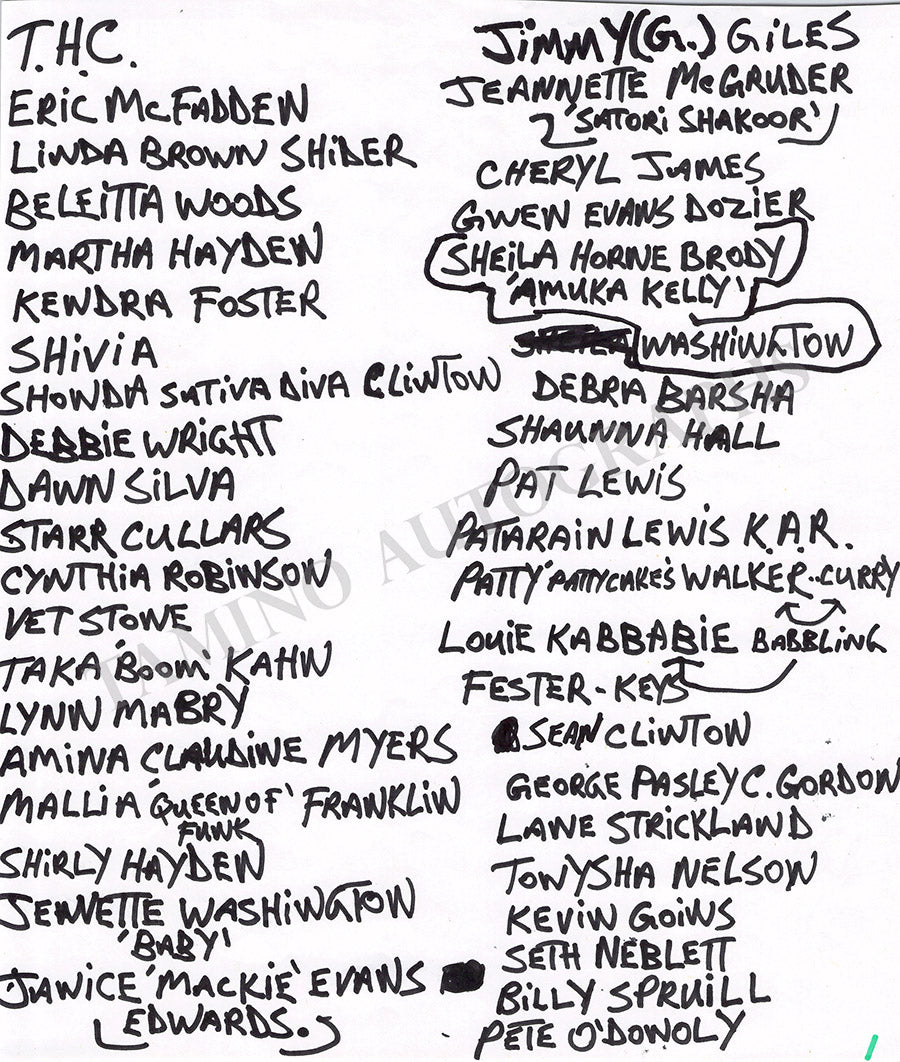 T.H.C.
ERIC McFADDEN
LINDA BROWN SHIDER
BELEITTA WOODS
MARTHA HAYDEN
KENDRA FOSTER
SHIVIA
SHONDA SATIVA DIVA CLINTON
DEBBIE WRIGHT
DAWN SILVA
STARR CULLARS
CYNTHIA ROBINSON
VET STOWE
TAKA 'BOOM' KAHN
LYNN MABRY
AMINA CLAUDINE MYERS
MALLIA 'QUEEN OF' FRANKLIN
FUNK
SHIRLY HAYDEN
JENNETTE WASHINGTON
'BABY'
JANICE 'MACKIE' EVANS
EDWARDS.
JIMMY (G.) GILES
JEANNETTE McGRUDER
'SATORI SHAKOOR'
CHERYL JAMES
GWEN EVANS DOZIER
SHEILA HORNE BRODY
'AMUKA KELLY'
WASHINGTON
DEBRA BARSHA
SHAUNNA HALL
PAT LEWIS
PATARAIN LEWIS K.A.R.
PATTY 'PATTYCAKES WALKER-CURRY
LOUIE KABBABIE BABBLING
FESTER-KEYS
SEAN CLINTON
GEORGE PASLEY C. GORDON
LANE STRICKLAND
TONYSHA NELSON
KEVIN GOINS
SETH NEBLETT
BILLY SPRUILL
PETE O'DONOLY
TAMINO AUTOGRAPHS